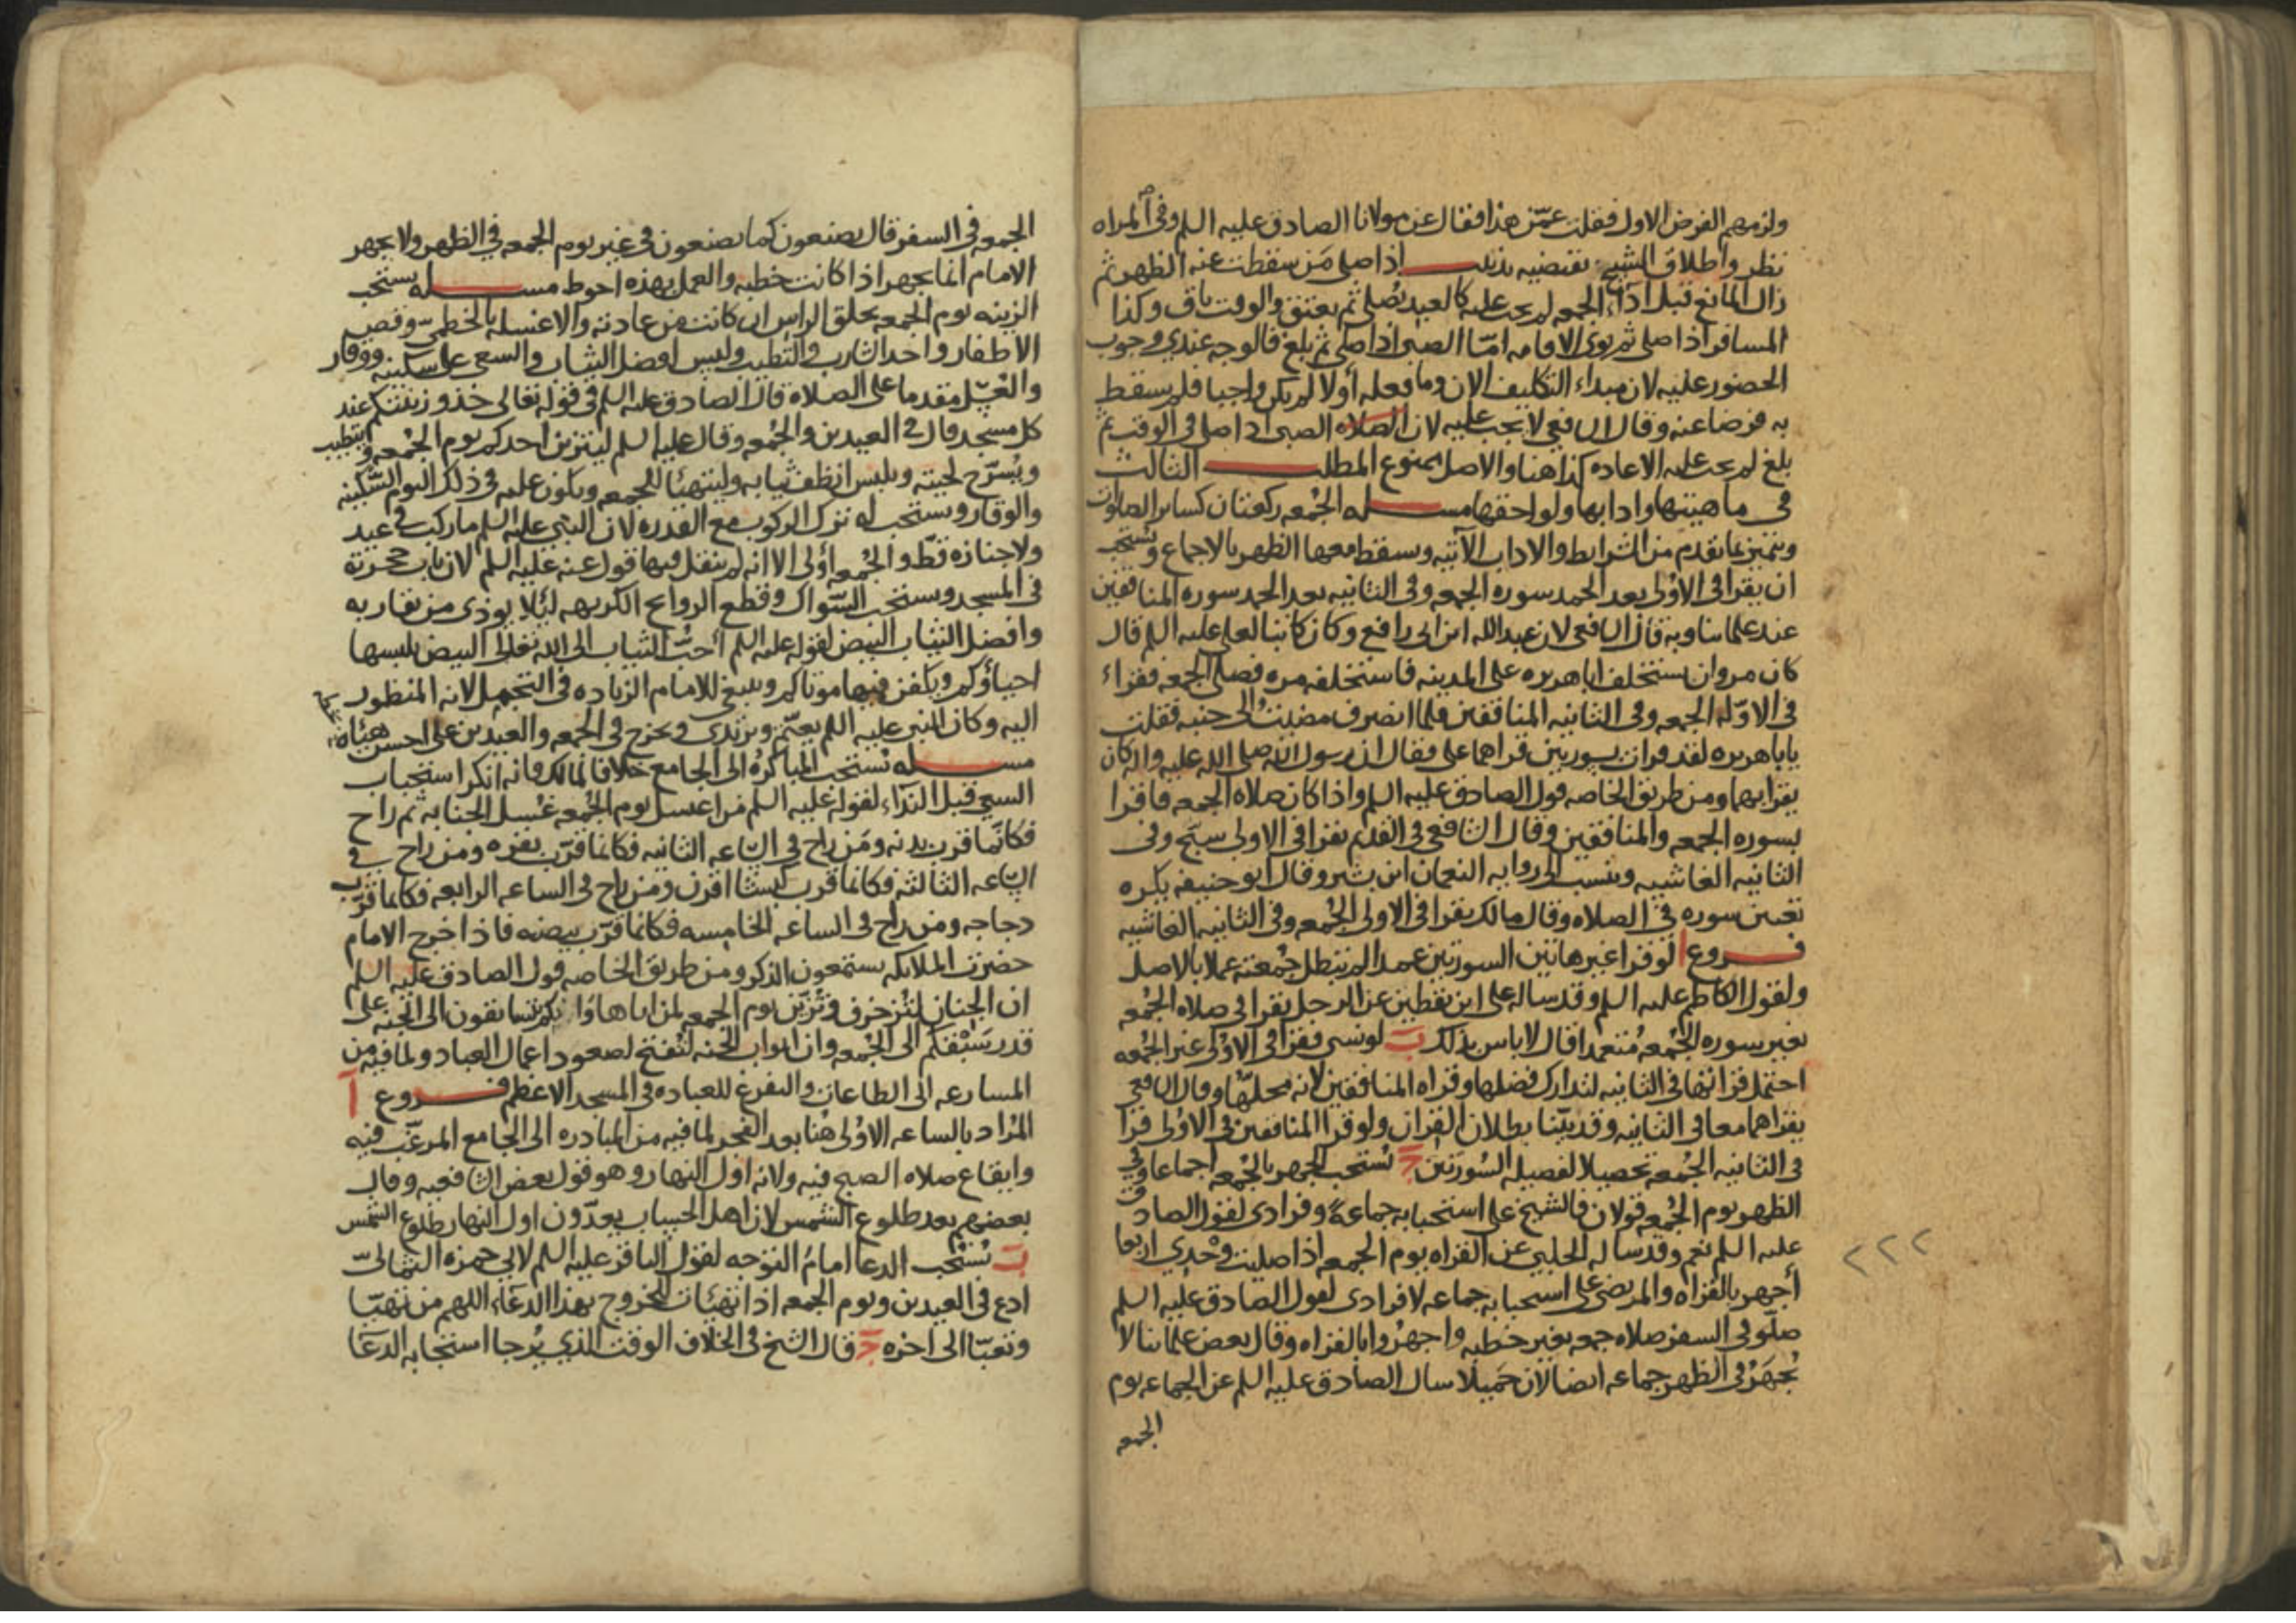 ولزمهم الفرض الاول فقلت عمّن هذا فقال عن مولانا الصادق عليه السلم وفى المراه
نظر واطلاق الشيخ يقتضيه تذنيب اذا صلى مَن سقطت عنه الظهر ثم
زال المانع قبل اداء الجمعه لم يجب عليه كالعبد يُصلى ثم يعتق والوقت باق وكذا
المسافر اذا صلى ثم نوى الاقامه امّا الصبى اذا صلى ثم بلغ فالوجه عندي وجوب
الحضور عليه لان مبداء التكليف الان وما فعله أولا لم يكن واجبا فلم يسقط
به فرضا عنه وقال الشافعى لا يجب عليه لان الصلاه الصبى اذا صلى فى الوقت ثم
بلغ لم يجب عليه الاعاده كذا هنا والاصل ممنوع المطلب الثالث
فى ماهيتها وادابها ولواحقها مسله الجُمعه ركعتان كساير الصلوات
وتتميز بما تقدم من الشرايط والاداب الآتيه ويسقط معها الظهر بالاجماع ويستحب
ان يقرا فى الاوْلى بعد الحمد سوره الجمعه وفى الثانيه بعد الحمد سوره المنافقين
عند علماىنا وبه قال الشافعى لان عبد الله ابن ابى رافع وكان كاتبا لعلى عليه السلم قال
كان مروان يستخلف اباهريره على المدينه فاستخلفه مره فصلى الجمعه فقراء
فى الاوّله الجمعه وفى الثانيه المنافقين فلما انصرف مضيتُ الى جنبه فقلت
يابا هريره لقد قرات سورتين قراهما على فقال ان رسول الله صلى الله عليه واله كان
يقرا بهما ومن طريق الخاصه قول الصادق عليه السلم واذا كان صلاه الجمعه فاقرا
بسوره الجمعه والمنافقين وقال الشافعى فى القديم يقرا فى الاولى سبّح وفى
الثانيه الغاشيه ونسب الى روايه النعمان ابن بشير وقال ابو حنيفه يكره
تعيين سوره فى الصلاه وقال مالك يقرا فى الاولى الجُمعه وفى الثانيه الغاشيه
فروع ا لو قرا غير هاتين السورتين عمدا لم تبطل جُمعته عملا بالاصل
ولقول الكاظم عليه السلم وقد ساله على ابن يقطين عن الرجل يقرا فى صلاه الجُمعه
بغير سوره الجُمعه مُتعمدا قال لاباس بذلك بَ لو نسى فقرا فى الاوْلى غير الجُمعه
احتمل قراتها فى الثانيه لتدارك فضلها وقراه المنافقين لانه محلهّا وقال الشافعى
يقراهما معا فى الثانيه وقد بيّنا بطلان القران ولو قرا المنافقين فى الاوُلى قرا
فى الثانيه الجُمعه تحصيلا لفضيله السُورتين جَ تُستحب الجهر بالجُمعه اجماعا وفي
الظهر يوم الجُمعه قولان فالشيخ على استحبابه جماعةً وفرادى لقول الصادق
عليه السلم نعم وقد ساله الحلبي عن القراه يوم الجمعه اذا صليت وحْدي اربعا
أجهر بالقراه والمرتضى على استحبابه جماعه لا فرادى لقول الصادق عليه السلم
صلّو فى السفر صلاه جمعه بغير خطبه واجهرُوا بالقراه وقال بعض علمائنا لا
يُجهَرُ فى الظهر جماعه ايضا لان جَميلا سال الصادق عليه السلم عن الجماعه يوم
الجمعه
٢٢٢
الجمعه فى السفر قال يصنعون كما يصنعون فى غير يوم الجمعه فى الظهر ولا يجهر
الامام انما يجهر اذا كانت خطبه والعمل بهذه احوط مسله يستحب
الزينه يوم الجمعه بحلق الراس ان كانت من عادته والا غسله بالخطمى وقص
الاظفار واخذ الشارب والتطيب ولبس افضل الثياب والسعى على سكينه ووقار
والغسل مقدما على الصلاه قال الصادق عليه السلم فى قوله تعالى خذو زينتكم عند
كل مسجد قال فى العيدين والجُمعه وقال عليه السلم ليتزين احدكم يوم الجُمعه ويتطيب
ويُسرّح لحيته ويلبس انظف ثيابه وليتهيّا للجمعه ويكون عليه فى ذلك اليوم السّكينه
والوقار ويستحب له ترك الركوب مع القدره لان النبي عليه السلم ما ركب فى عيد
ولا جنازه قطّ والجُمعه أوْلى الا انه لم ينقل فيها قول عنه عليه السلم لان باب حجرته
فى المسجد ويستحب السّواك وقطع الروايح الكريهه ليَلا يوذى من يقاربه
وافضل الثياب البيض لقوله عليه السلم أحبُّ الثياب الى الله تعالى البيض يلبسها
احياؤكم ويكفن فيها موتاكم وينبغى للامام الزياده فى التجمل لانه المنظور
اليه وكان النبى عليه السلم يعتمّ ويرتدى ويخرج فى الجمعه والعيدين على احسن هيئاه
مسله تُستحب المباكرُه الى الجامع خلافا لمالك فانه انكر استحباب
السعى قبل النداء لقوله عليه السلم من اغتسل يوم الجُمعه غُسل الجنابه ثم راح
فكانّما قرب بدنه ومَن راح فى الساعه الثانيه فكانما قرّب بقره ومن راح في
الساعه الثالثه فكانما قرب كبشا اقرن ومن راح فى الساعه الرابعه فكانما قرّب
دجاجه ومن راح فى الساعه الخامسه فكانما قرّب بيضه فاذا خرج الامام
حضرت الملايكه يستمعون الذكر ومن طريق الخاصه قول الصادق عليه السلم
ان الجنان لتُزخرف وتُزيّن يوم الجمعه لمن اتاها وانكم تتسابقون الى الجنه على
قدر سَبْقكم الى الجُمعه وان ابواب الجنه لتُفتح لصعود اعمال العباد ولما فيه من
المسارعه الى الطاعات والتفرغ للعباده فى المسجد الاعظم فروع آ
المُراد بالساعه الاوْلى هُنا بعد الفجر لما فيه من المبادره الى الجامع المرغّب فيه
وايقاع صلاه الصبح فيه ولانه اول النهار وهو قول بعض الشافعيه وقال
بعضهم بعد طلوع الشمس لان اهل الحساب يعدّون اول النهار طلوع الشمس
بَ تُستحب الدعا امامُ التوجه لقول الباقر عليه السلم لابي حمزه الثماليّ
ادع فى العيدين ويوم الجمعه اذا تهيّات للخروج بهذا الدعاء اللهم من تهيّا
وتعبّا الى اخره جَ قال الشيخ فى الخلاف الوقت الذي يُرجا استجابه الدعَا